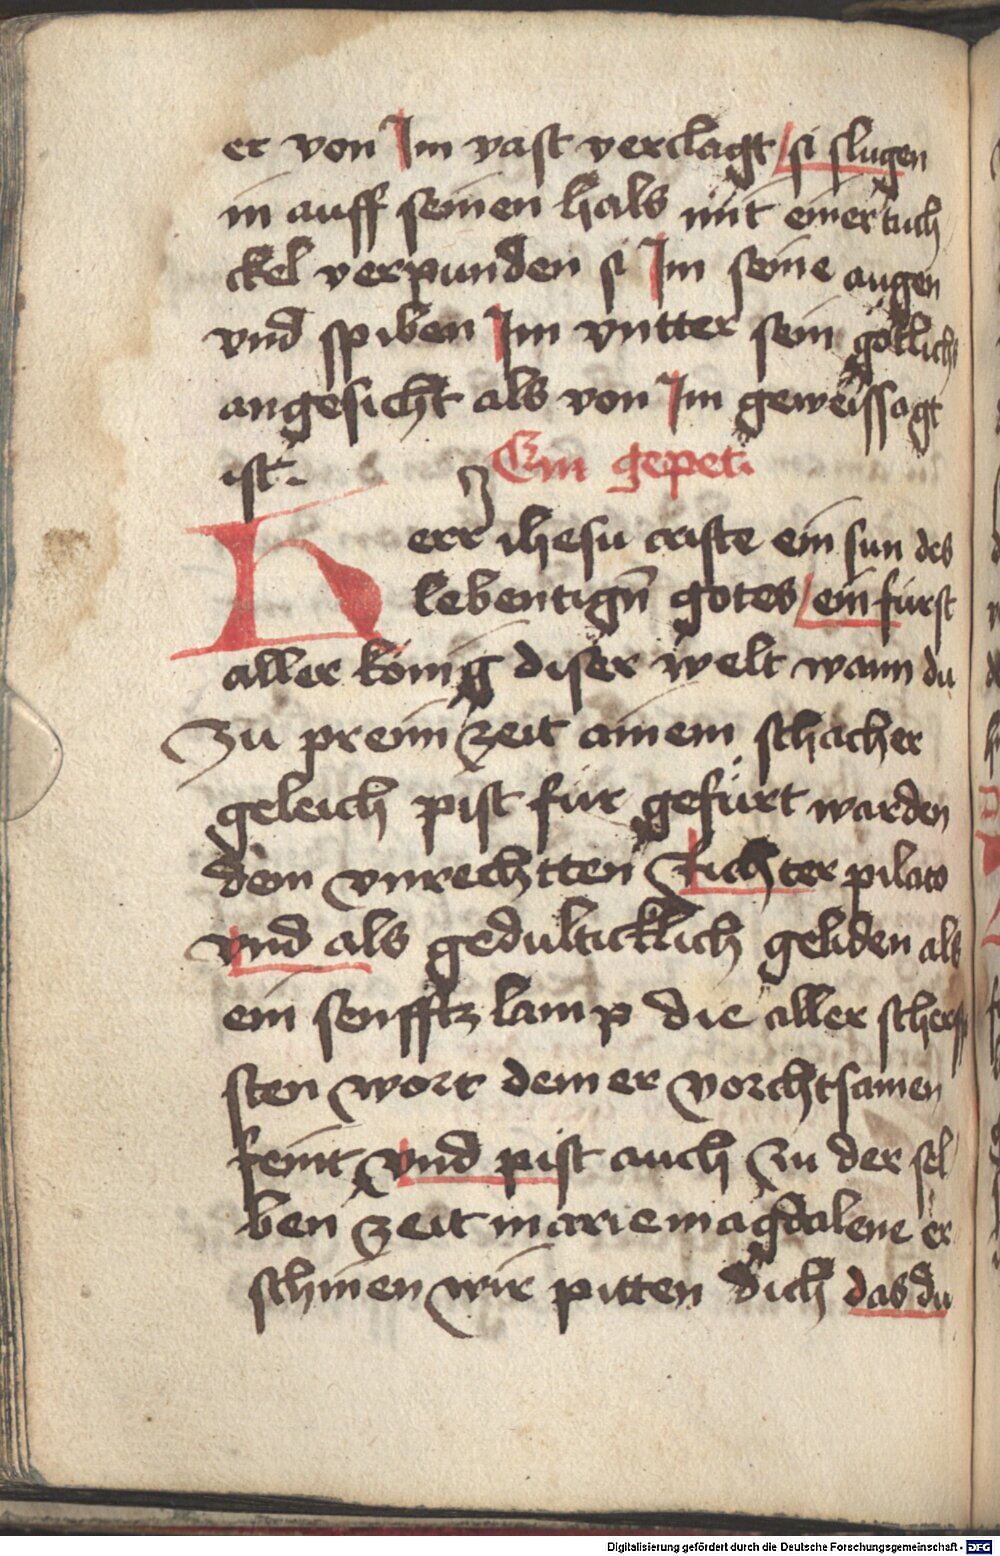 er von Im vast verclagt si slugen
in auff seinen hals mit einer tuch
ckel verpunden si Im seine augen
vnd spiben Im vntter sein gotlichs
angesicht als von Im geweissagt
ist.
Ein gepet.
Herr ihesu criste ein sun des
lebentign̄ gotes ein fürst
aller könig diser welt wann du
zu preim zeit ainem schacher
geleich pist für gefürt warden
dem vnrechtten Richter pilato
vnd als gedulticklich geliden als
ein senfftz lamp die aller scherff
sten wort deiner vorchtsamen
feint vnd pist auch zu der sel
ben zeit marie magdalene er
schinen wir pitten dich das du
Digitalisierung gefördert durch die Deutsche Forschungsgemeinschaft - DFG